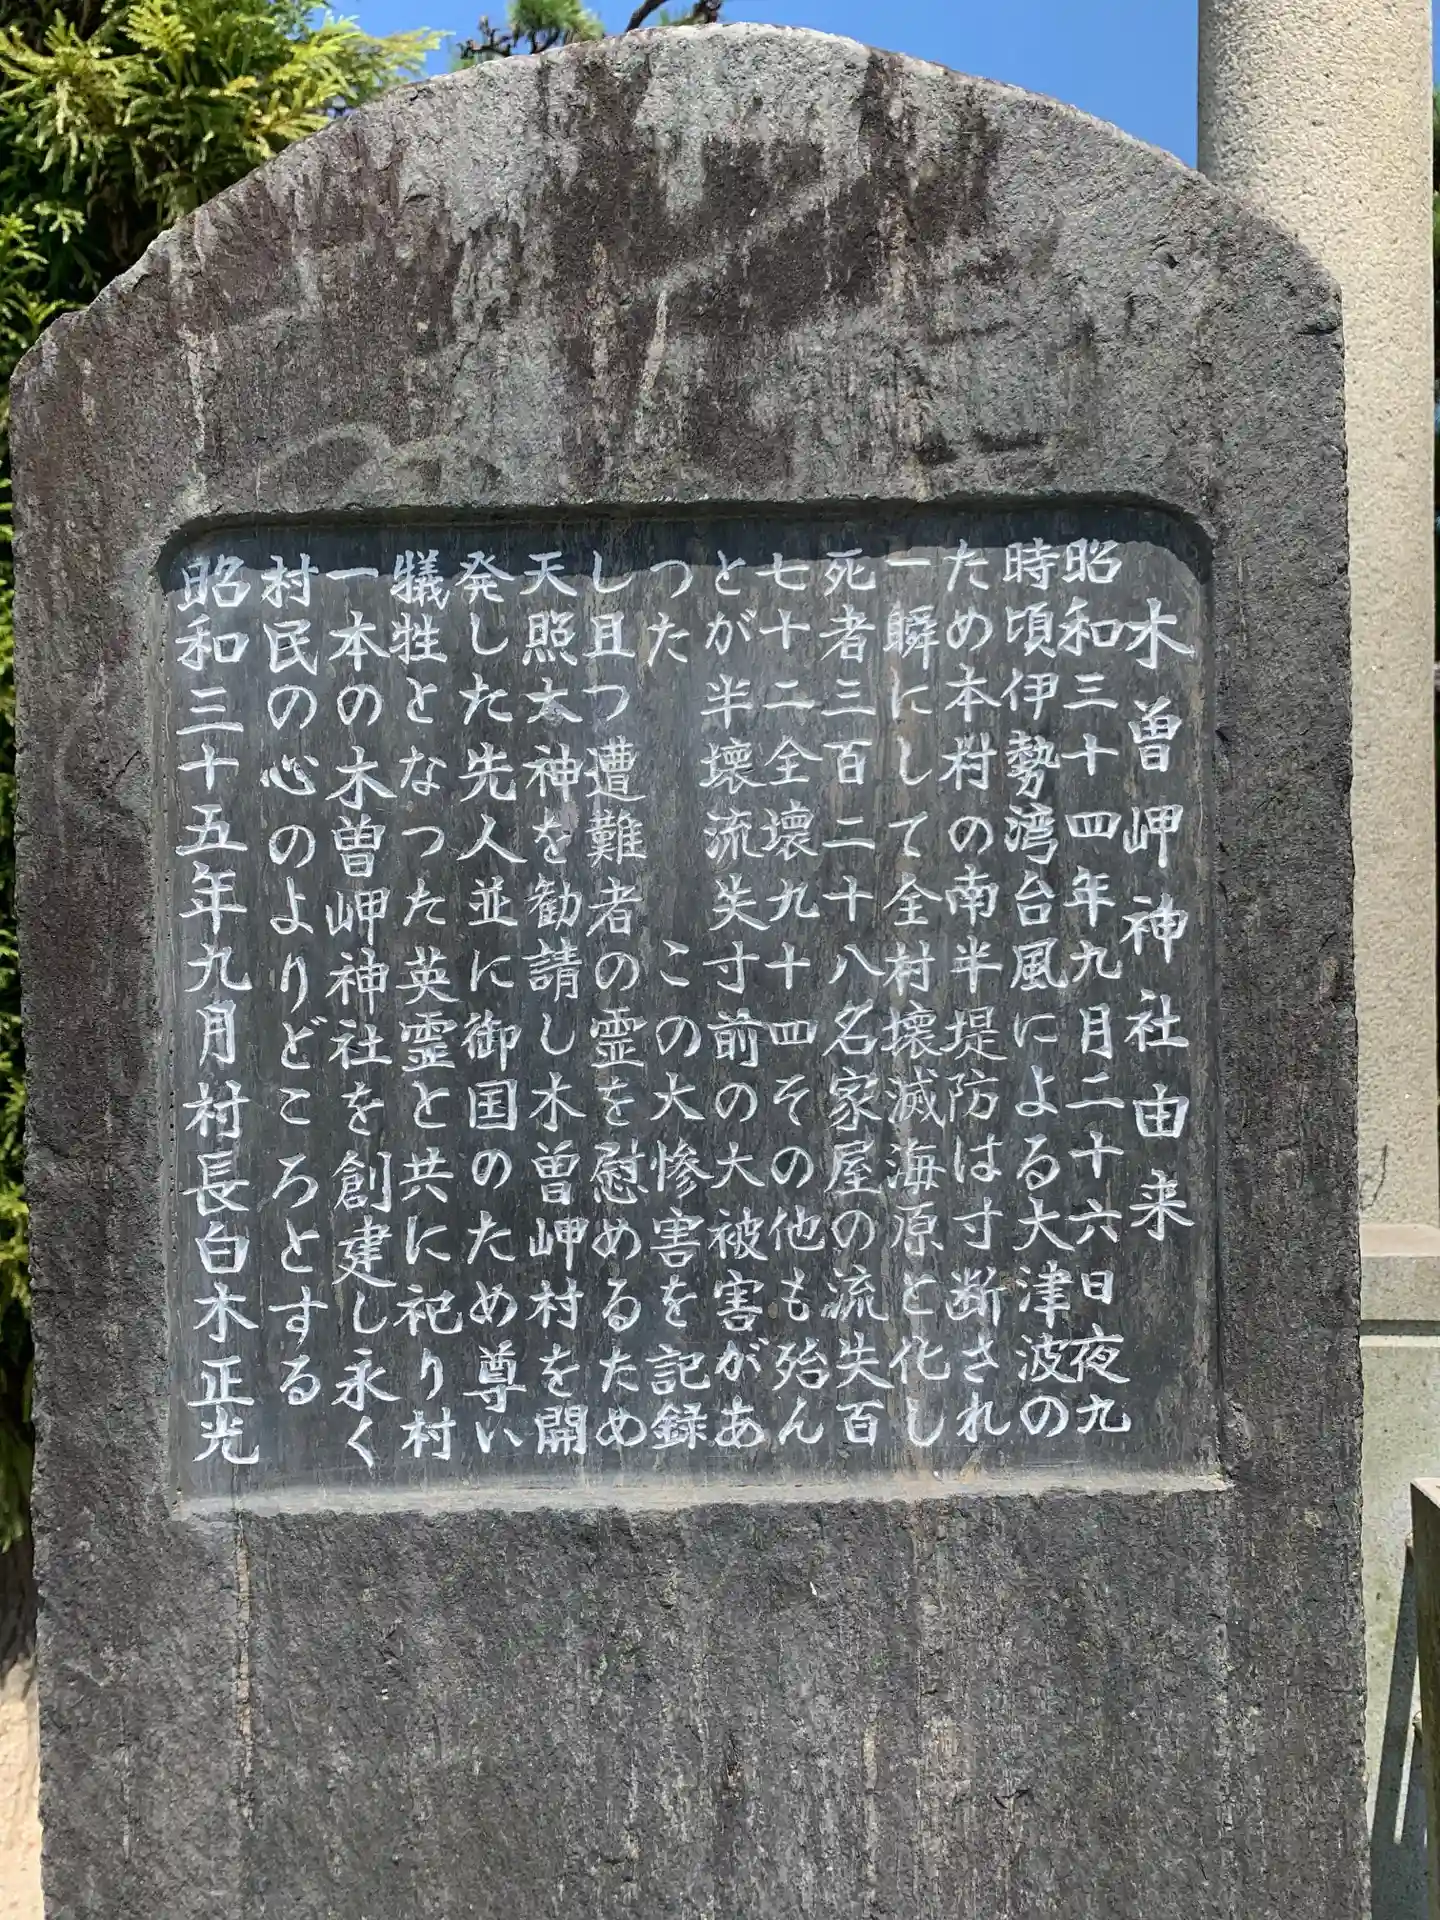 木曽岬神社由来
昭和三十四年九月二十六日夜九
時頃伊勢湾台風による大津波の
ため本村の南半堤防は寸断され
一瞬にして全村壊滅海原と化し
死者三百二十八名家屋の流失百
七十二全壊九十四その他も殆ん
とが半壊流失寸前の大被害があ
つた　　　　この大惨害を記録
し且つ遭難者の霊を慰めるため
天照大神を勧請し木曽岬村を開
発した先人並に御国のため尊い
犠牲となつた英霊と共に祀り村
一本の木曽岬神社を創建し永く
村民の心のよりどころとする
昭和三十五年九月村長白木正光